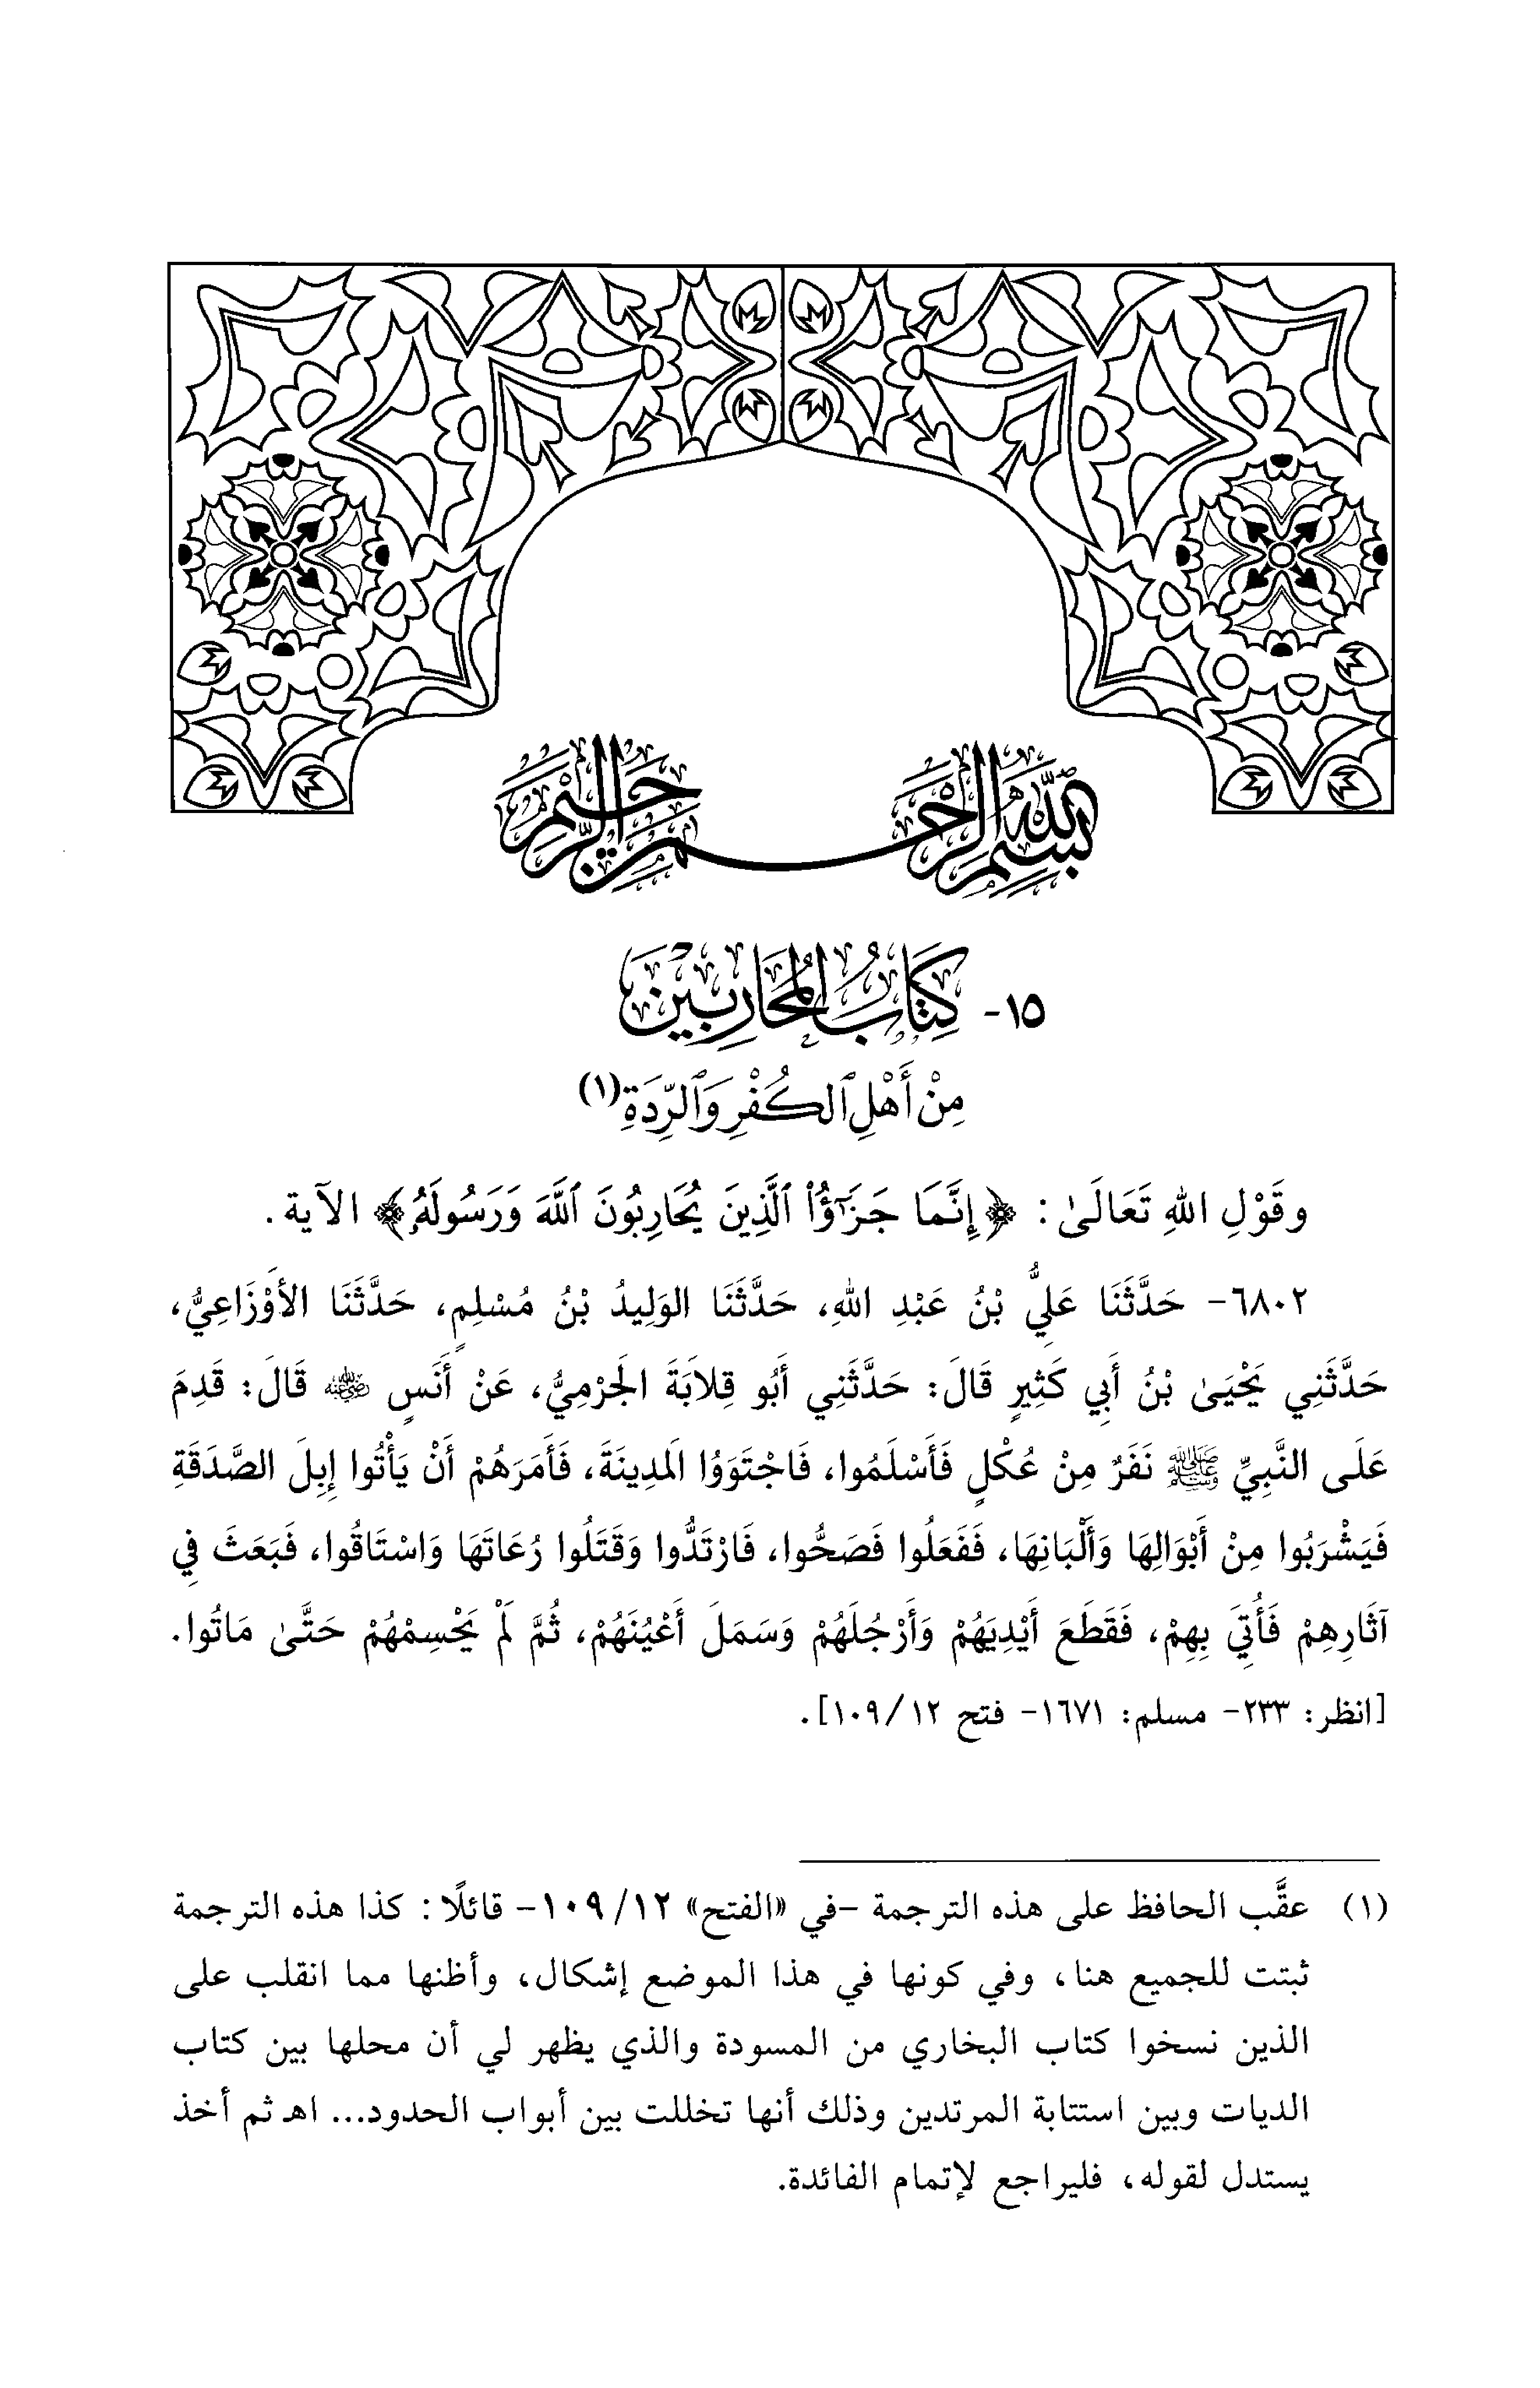 بسم الله الرحمن الرحيم
١٥- كِتَابُ المُحَارِبِيْنَ
مِنْ أَهْلِ ٱلْكُفْرِ وَٱلرِّدَةِ(١)
وقَوْلِ اللهِ تَعَالَىٰ: ﴿إِنَّمَا جَزَٰٓؤُاْ ٱلَّذِينَ يُحَارِبُونَ ٱللَّهَ وَرَسُولَهُۥ﴾ الآية.
٦٨٠٢- حَدَّثَنَا عَلِيُّ بْنُ عَبْدِ اللهِ، حَدَّثَنَا الوَلِيدُ بْنُ مُسْلِمٍ، حَدَّثَنَا الأَوْزَاعِيُّ،
حَدَّثَنِي يَحْيَىٰ بْنُ أَبِي كَثِيرٍ قَالَ: حَدَّثَنِي أَبُو قِلَابَةَ الجَرْمِيُّ، عَنْ أَنَسٍ رضي الله عنه قَالَ: قَدِمَ
عَلَى النَّبِيِّ ﷺ نَفَرٌ مِنْ عُكْلٍ فَأَسْلَمُوا، فَاجْتَوَوُا المَدِينَةَ، فَأَمَرَهُمْ أَنْ يَأْتُوا إِبِلَ الصَّدَقَةِ
فَيَشْرَبُوا مِنْ أَبْوَالِهَا وَأَلْبَانِهَا، فَفَعَلُوا فَصَحُّوا، فَارْتَدُّوا وَقَتَلُوا رُعَاتَهَا وَاسْتَاقُوا، فَبَعَثَ فِي
آثَارِهِمْ فَأُتِيَ بِهِمْ، فَقَطَعَ أَيْدِيَهُمْ وَأَرْجُلَهُمْ وَسَمَلَ أَعْيُنَهُمْ، ثُمَّ لَمْ يَحْسِمْهُمْ حَتَّىٰ مَاتُوا.
[انظر: ٢٣٣- مسلم: ١٦٧١- فتح ١٢/ ١٠٩].
(١) عقَّب الحافظ على هذه الترجمة -في «الفتح» ١٢/ ١٠٩- قائلًا: كذا هذه الترجمة
ثبتت للجميع هنا، وفي كونها في هذا الموضع إشكال، وأظنها مما انقلب على
الذين نسخوا كتاب البخاري من المسودة والذي يظهر لي أن محلها بين كتاب
الديات وبين استتابة المرتدين وذلك أنها تخللت بين أبواب الحدود... اهـ ثم أخذ
يستدل لقوله، فليراجع لإتمام الفائدة.